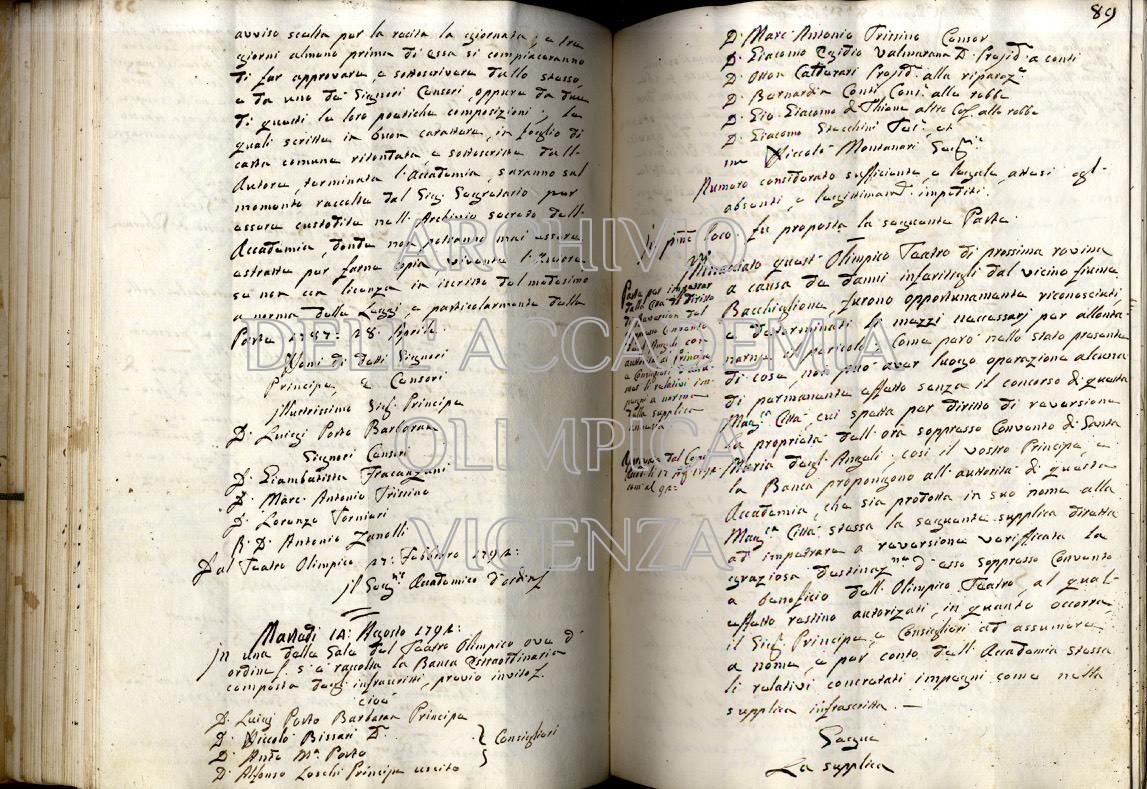 avviso scelta per la recita la giornata, e tre
giorni almeno prima di essa si compiaceranno
di far approvare, e sottoscrivere dallo stesso,
e da uno de' Signori Censori, oppure da due
di questi le loro poetiche composizioni; le
quali scritte in buon carattere, in foglio di
carta comune ritondata, e sottoscritte dall'
Autore, terminata l'Accademia, saranno sul
momento raccolte dal Sig. Segretario per
essere custodite nell'Archivio secreto dell'
Accademia, donde non potranno mai essere
estratte per farne copia vivente l'Autore
se non con licenza in iscritto del medesimo
a norma delle Leggi, e particolarmente della
Parte 1787: 28: Aprile.
Nomi di detti Signori
Principe, e Censori
Illustrissimo Sig. Principe
D. Luigi Porto Barbaran
Signori Censori
D. Giambatista Fracanzani
D. Marc'Antonio Trissino
D. Lorenzo Torniari
R. D. Antonio Zanolli
Dal Teatro Olimpico 17: Febbraro 1791:
Il Seg. Accademico d'ordine
Martedì 14: Agosto 1791:
In una delle Sale del Teatro Olimpico ove d'
ordine s'è raccolta la Banca Estraordinaria
composta dagl'infrascritti, previo invito
cioè
D. Luigi Porto Barbaran Principe
D. Niccolò Bissari D.
D. Anto. Ma. Porto
D. Alfonso Loschi Principe uscito
Consiglieri
89
D. Marc'Antonio Trissino Censor
D. Giacomo Egidio Valmarana D. Presid. a conti
D. Otton Calderari Presid. alla riparaz.
D. Bernardin Conti, Cons. alle robbe
D. Gio. Giacomo di Thiene altro alle robbe
D. Giacomo Stecchini
me Niccolò Montanari Seg.
Numero considerato sufficiente, e legale attesi gl'
absenti, e legittimam. impediti,
In pmo loco fu proposta la seguente Parte.
Minacciato quest'Olimpico Teatro di prossima rovina
a causa de danni inferitigli dal vicino fiume
Bacchiglione, furono opportunamente riconosciuti,
e determinati li mezzi necessarj per allonta-
narne il pericolo. Come però nello stato presente
di cose, non può aver luogo operazione alcuna
di permanente effetto senza il concorso di questa
Mag.ca Città, cui spetta per diritto di reversione
la proprietà dell'ora soppresso Convento di Santa
Maria degl'Angeli, così il vostro Principe, e
la Banca propongono all'autorità di questa
Accademia, che sia prodotta in suo nome alla
Mag.ca Città stessa la seguente supplica diretta
ad impetrare a reversione verificata la
graziosa destinaz.ne d'esso soppresso Convento
a beneficio dell'Olimpico Teatro, al qual'
effetto restino autorizati, in quanto occorra,
il Sig. Principe, e Consiglieri ad assumere
a nome, e per conto dell'Accademia stessa
li relativi concertati impegni come nella
supplica infrascritta. —
Segue
La supplica
Parte per impetrar
dalla Città il diritto
di reversion del
Convento
Angeli con
autorità al Principe
e Consiglieri
per li relativi im-
pegni a norma
della supplica